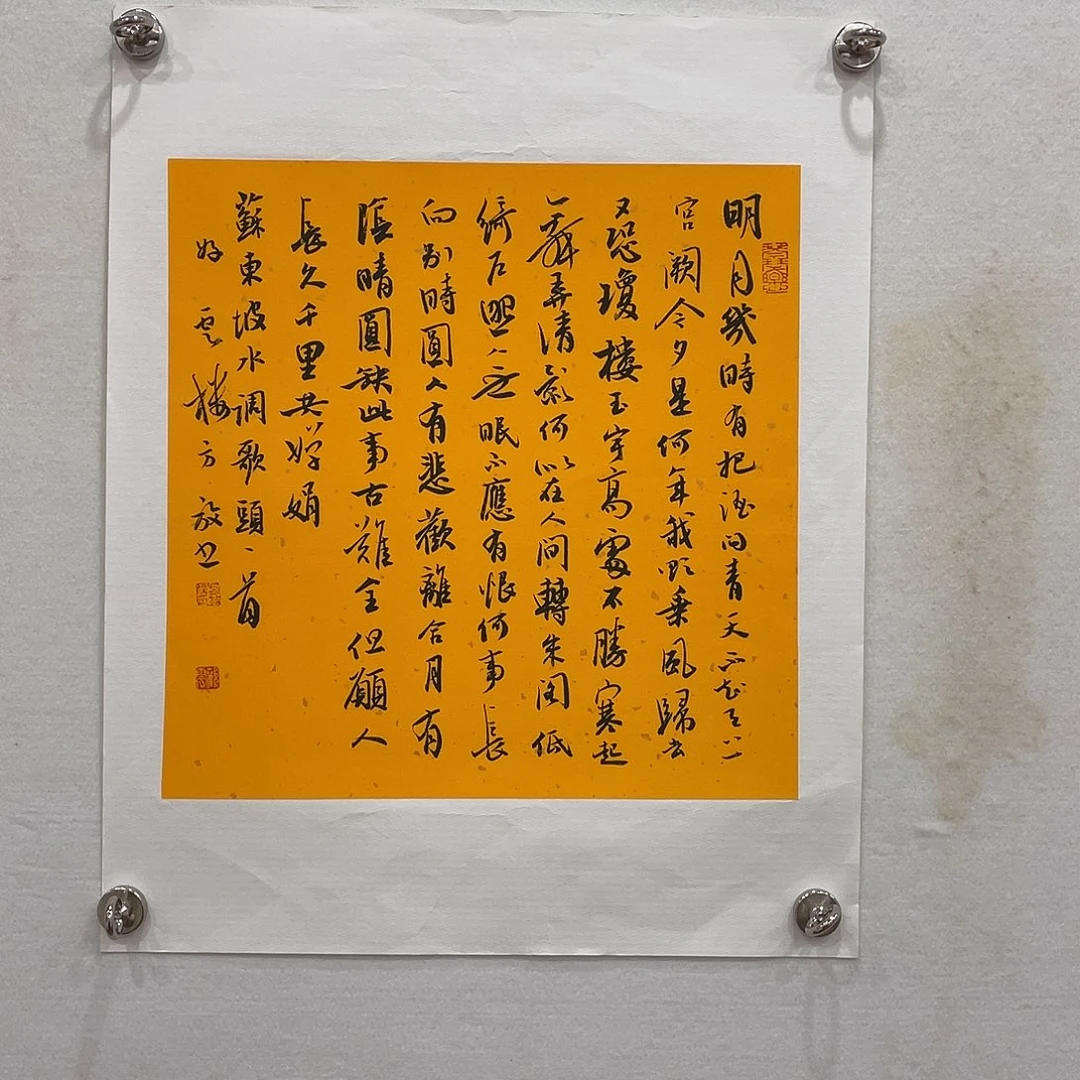 明月幾時有把酒問青天不知天上
宮闕今夕是何年我欲乘風歸去
又恐瓊樓玉宇高處不勝寒起
舞弄清影何似在人間轉朱閣低
綺戶照無眠不應有恨何事長
向別時圓人有悲歡離合月有
陰晴圓缺此事古難全但願人
長久千里共嬋娟
蘇東坡水調歌頭一首
好雲樓方放书